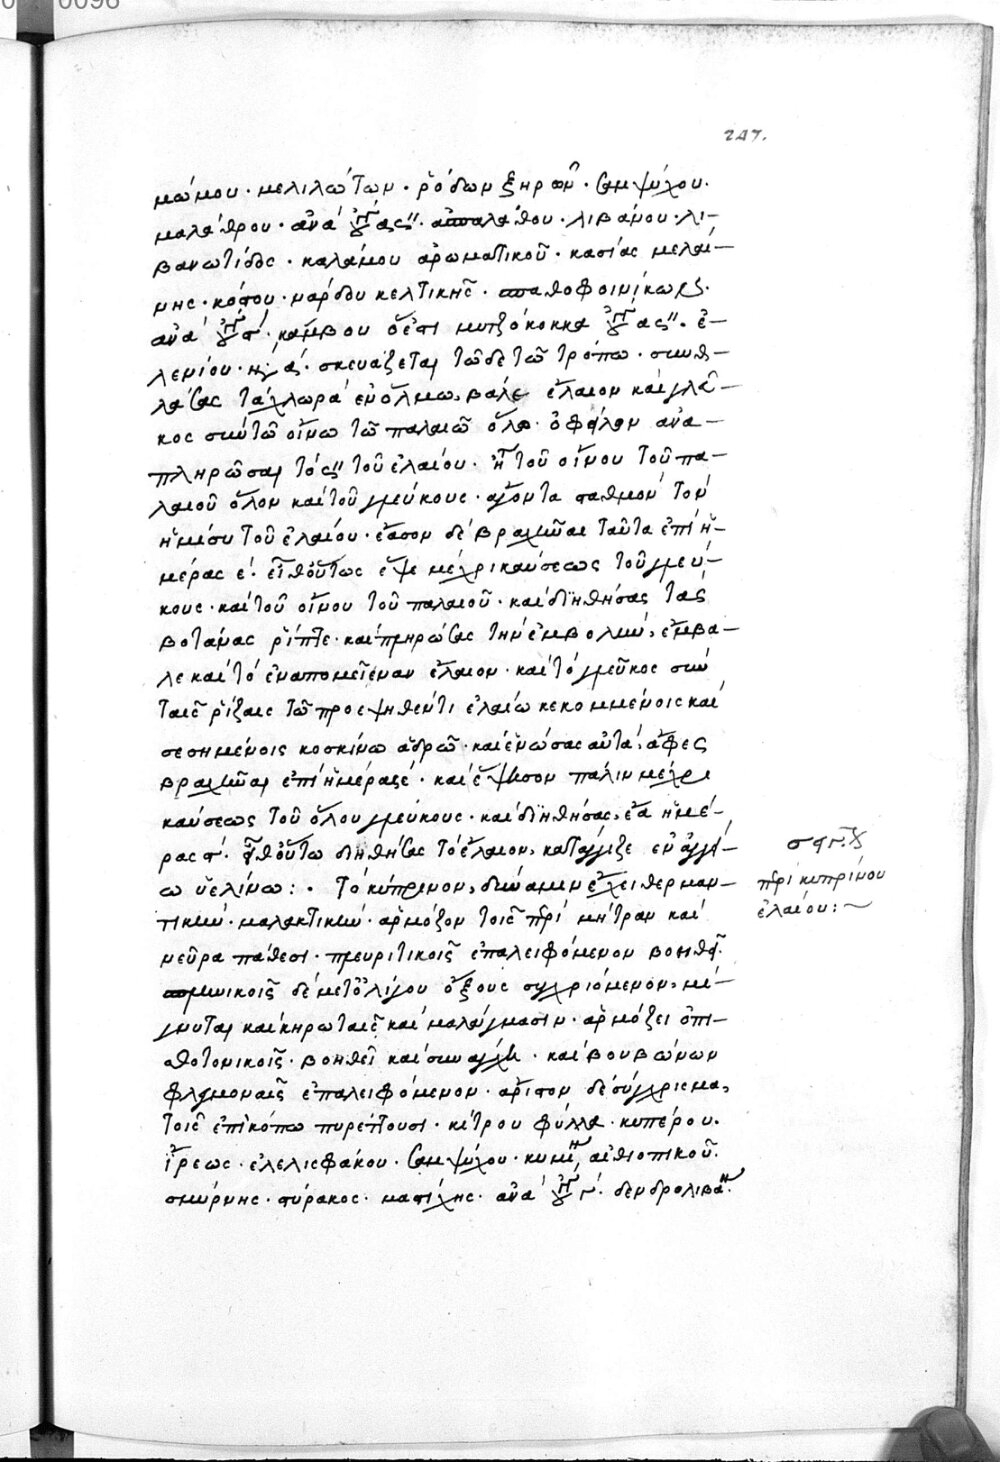 247.
μώμου · μελιλώτων · ῥόδων ξηρῶν · σαμψύχου ·
μαλάθρου · ἀνὰ οὐγ ας´´ · ἀσπαλάθου · λιβάνου · λι-
βανωτίδος · καλάμου ἀρωματικοῦ · κασίας μελαί-
νης · κόστου · νάρδου κελτικῆς ·
ἀνὰ · κάμβου ὅ ἐστι μυτζόκοκκα ας´´ · ἑ-
λενίου · σκευάζεται τῶδε τῶ τρόπω · συνθ-
λάσας τὰ χλωρὰ ἐν ὅλμω, βάλε ἔλαιον καὶ γλεῦ-
κος σὺν τῶ οἴνω τῶ παλαιῶ ὅλο · ὀφεῖλον ἀνα-
πληρῶσαι τὸ ς´´ τοῦ ἐλαίου · ἢ τοῦ οἴνου τοῦ πα-
λαιοῦ ὅλον καὶ τοῦ γλεύκους · ἄγοντα σταθμὸν τὸν
ἥμισυ τοῦ ἐλαίου · ἔασον δὲ βραχῆναι ταῦτα ἐπὶ ἡ-
μέρας ε´ · εἶθ οὕτως ἕψε μέχρι καύσεως τοῦ γλεύ-
κους · καὶ τοῦ οἴνου τοῦ παλαιοῦ · καὶ διηθήσας τὰς
βοτάνας ῥίπτε · καὶ πληρώσας τὴν ἐμβολὴν, ἔμβα-
λε καὶ τὸ ἐναπομεῖναν ἔλαιον · καὶ τὸ γλεῦκος σὺν
ταῖς ῥίζαις τῶ προεψηθέντι ἐλαίω κεκομμένοις καὶ
σεσημένοις κοσκίνω ἁδρῶ · καὶ ἑνώσας αὐτὰ, ἄφες
βραχῆναι ἐπὶ ἡμέρας ε´ · καὶ ἕψησον πάλιν μέχρι
καύσεως τοῦ ὅλου γλεύκους · καὶ διηθήσας, ἔα ἡμέ-
ρας · εἶθ οὕτω διηθήσας τὸ ἔλαιον, κατάμιξε ἐν ἀγγεί-
ω ὑελίνω : · τὸ κύπρινον, δύναμιν ἔχει θερμαν-
τικὴν · μαλακτικὴν · ἁρμόζον τοῖς περὶ μήτραν καὶ
νεῦρα πάθεσι · πλευριτικοῖς ἐπαλειφόμενον βοηθεῖ ·
δὲ μετ ὀλίγου ὄξους συγχριόμενον, μί-
γνυται καὶ κηρωταῖς καὶ μαλάγμασιν · ἁρμόζει ὀπι-
σθοτονικοῖς · βοηθεῖ καὶ συνάγχη · καὶ βουβώνων
φλεγμοναῖς ἐπαλειφόμενον · ἄριστον δὲ σύγχρισμα,
τοῖς ἐπὶ κόπω πυρέττουσι · κίτρου φύλλα · κυπέρου ·
ἴρεως · ἐλελισφάκου · σαμψύχου · κυμίνου αἰθιοπικοῦ ·
σμύρνης · στύρακος · μαστίχης · ἀνὰ οὐγ γ´ · δενδρολιβάνου ·
περὶ κυπρίνου
ἐλαίου : ~